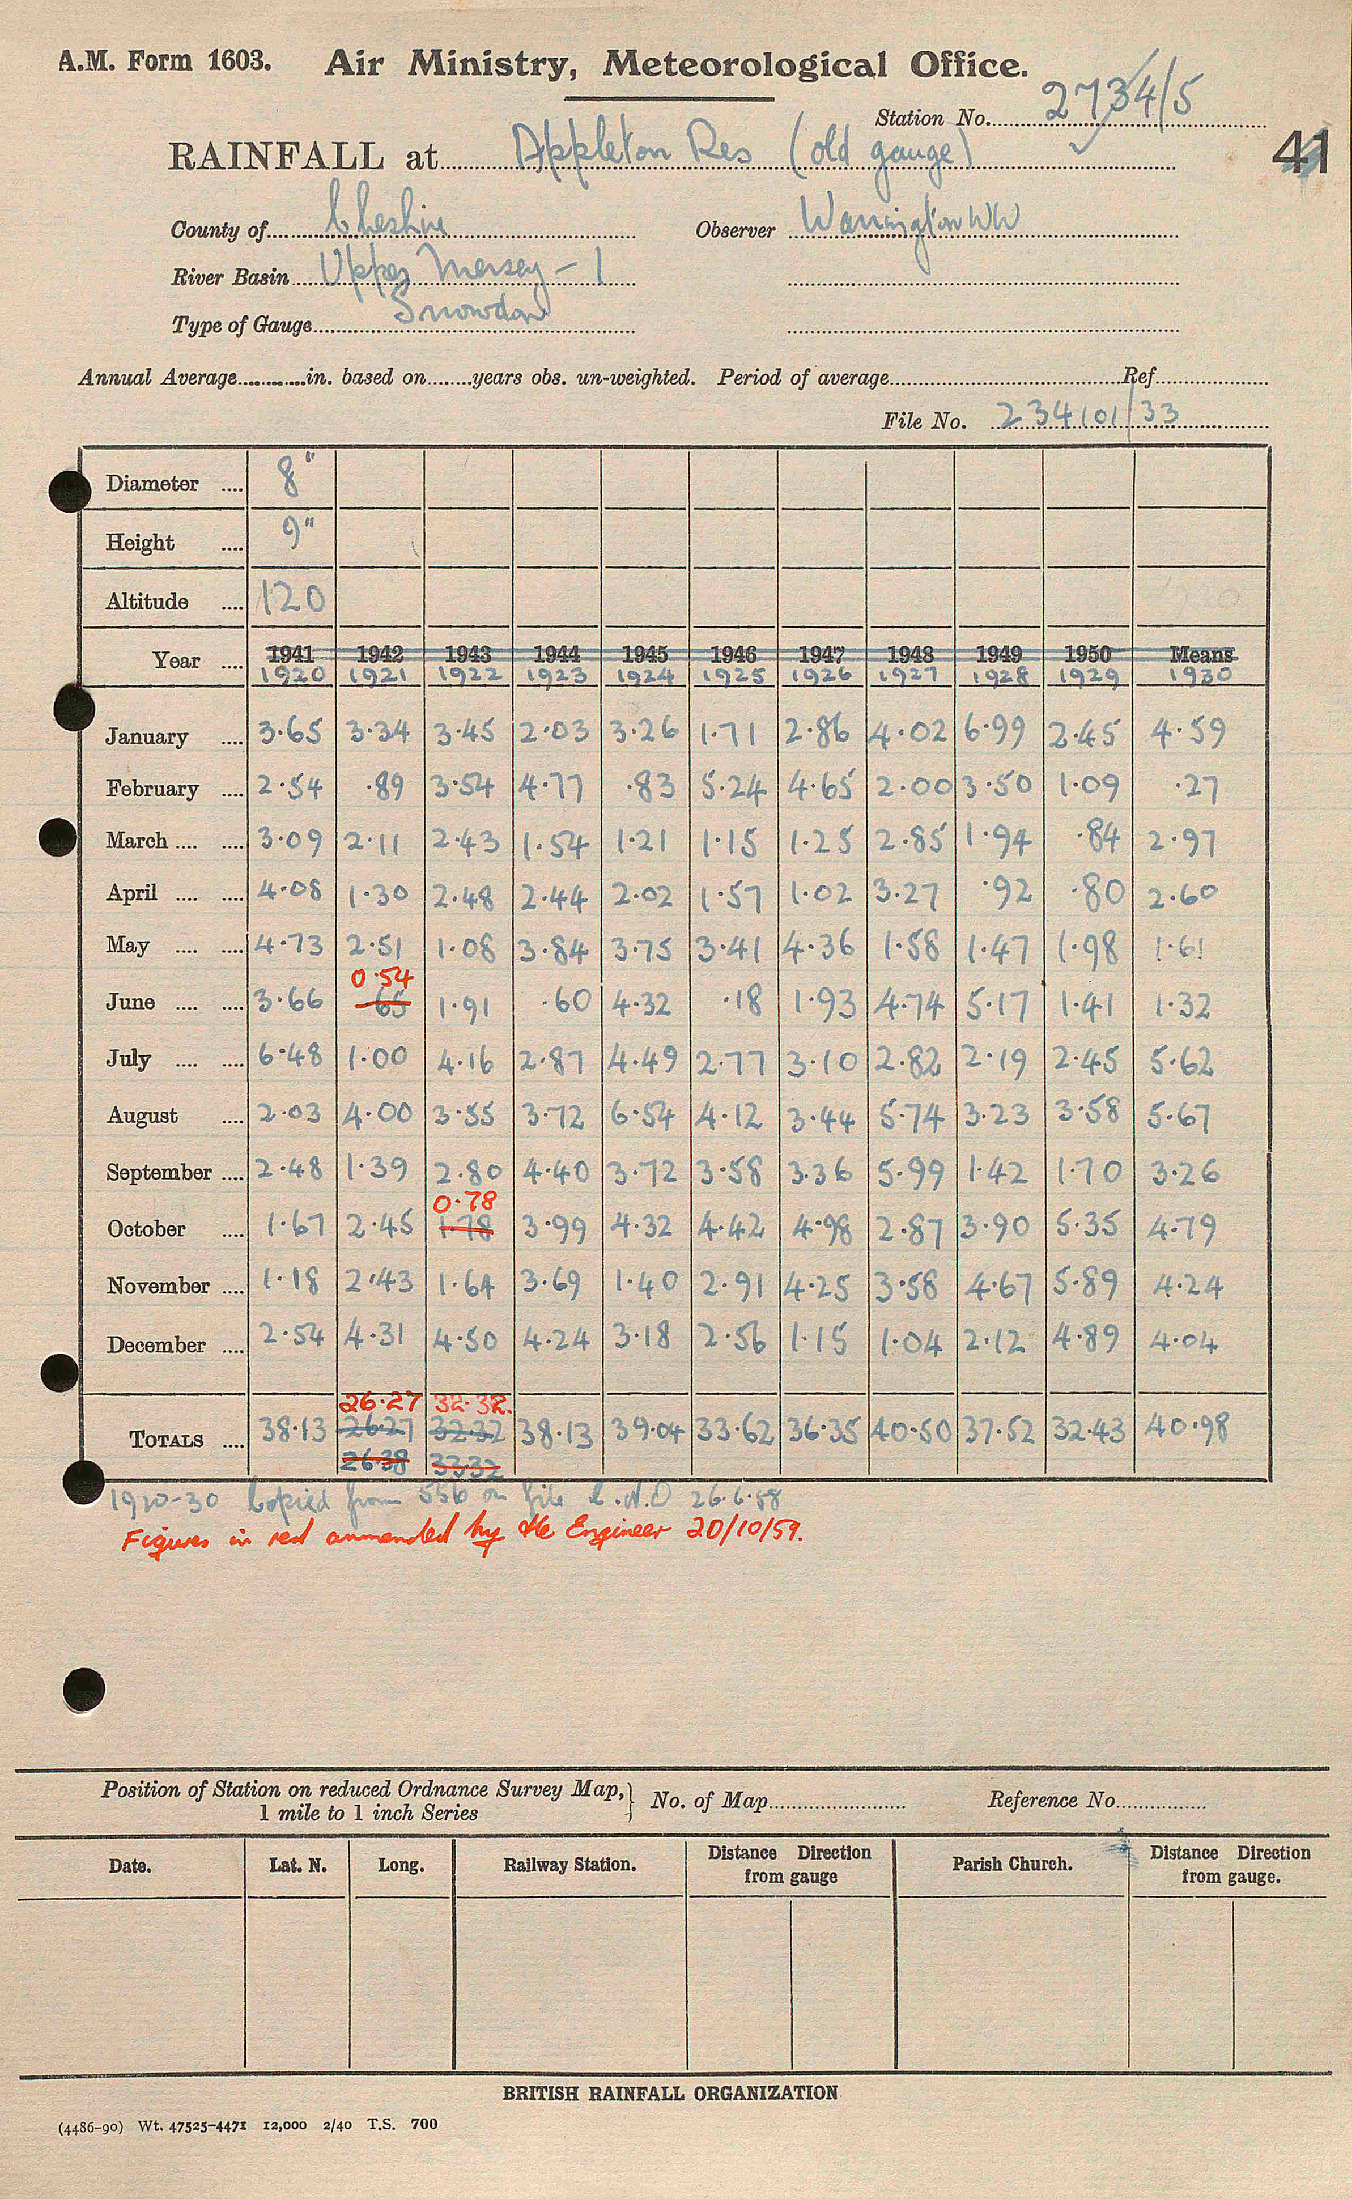 A.M. Form 1603. Air Ministry, Meteorological Office.
Station No. 2734/5
RAINFALL at Appleton Res (old gauge)
41
County of Cheshire Observer Warrington WW
River Basin Upper Mersey - 1
Type of Gauge Snowdon
Annual Average in. based on years obs. un-weighted. Period of average Ref
File No. 234101/33
Diameter 8"
Height 9"
Altitude 120
Year 1941 1942 1943 1944 1945 1946 1947 1948 1949 1950 Means
1920 1921 1922 1923 1924 1925 1926 1927 1928 1929 1930
January 3.65 3.34 3.45 2.03 3.26 1.71 2.86 4.02 6.99 2.45 4.59
February 2.54 .89 3.54 4.77 .83 5.24 4.65 2.00 3.50 1.09 .27
March 3.09 2.11 2.43 1.54 1.21 1.15 1.25 2.85 1.94 .84 2.97
April 4.08 1.30 2.48 2.44 2.02 1.57 1.02 3.27 .92 .80 2.60
May 4.73 2.51 1.08 3.84 3.75 3.41 4.36 1.58 1.47 1.98 1.61
0.54
June 3.66 65 1.91 .60 4.32 .18 1.93 4.74 5.17 1.41 1.32
July 6.48 1.00 4.16 2.87 4.49 2.77 3.10 2.82 2.19 2.45 5.62
August 2.03 4.00 3.55 3.72 6.54 4.12 3.44 5.74 3.23 3.58 5.67
September 2.48 1.39 2.80 4.40 3.72 3.58 3.36 5.99 1.42 1.70 3.26
0.78
October 1.67 2.45 1.78 3.99 4.32 4.42 4.98 2.87 3.90 5.35 4.79
November 1.18 2.43 1.64 3.69 1.40 2.91 4.25 3.58 4.67 5.89 4.24
December 2.54 4.31 4.50 4.24 3.18 2.56 1.15 1.04 2.12 4.89 4.04
26.27 32.32.
TOTALS 38.13 26.27 32.32 38.13 39.04 33.62 36.35 40.50 37.52 32.43 40.98
26.38 33.32
1920-30 Copied from 556 on file 26.6.58
Figures in red ammended by the Engineer 20/10/59.
Position of Station on reduced Ordnance Survey Map,
1 mile to 1 inch Series
No. of Map Reference No.
Date. Lat. N. Long. Railway Station. Distance Direction from gauge Parish Church. Distance Direction from gauge.
BRITISH RAINFALL ORGANIZATION
(4486-90) Wt. 47525-4471 12,000 2/40 T.S. 700